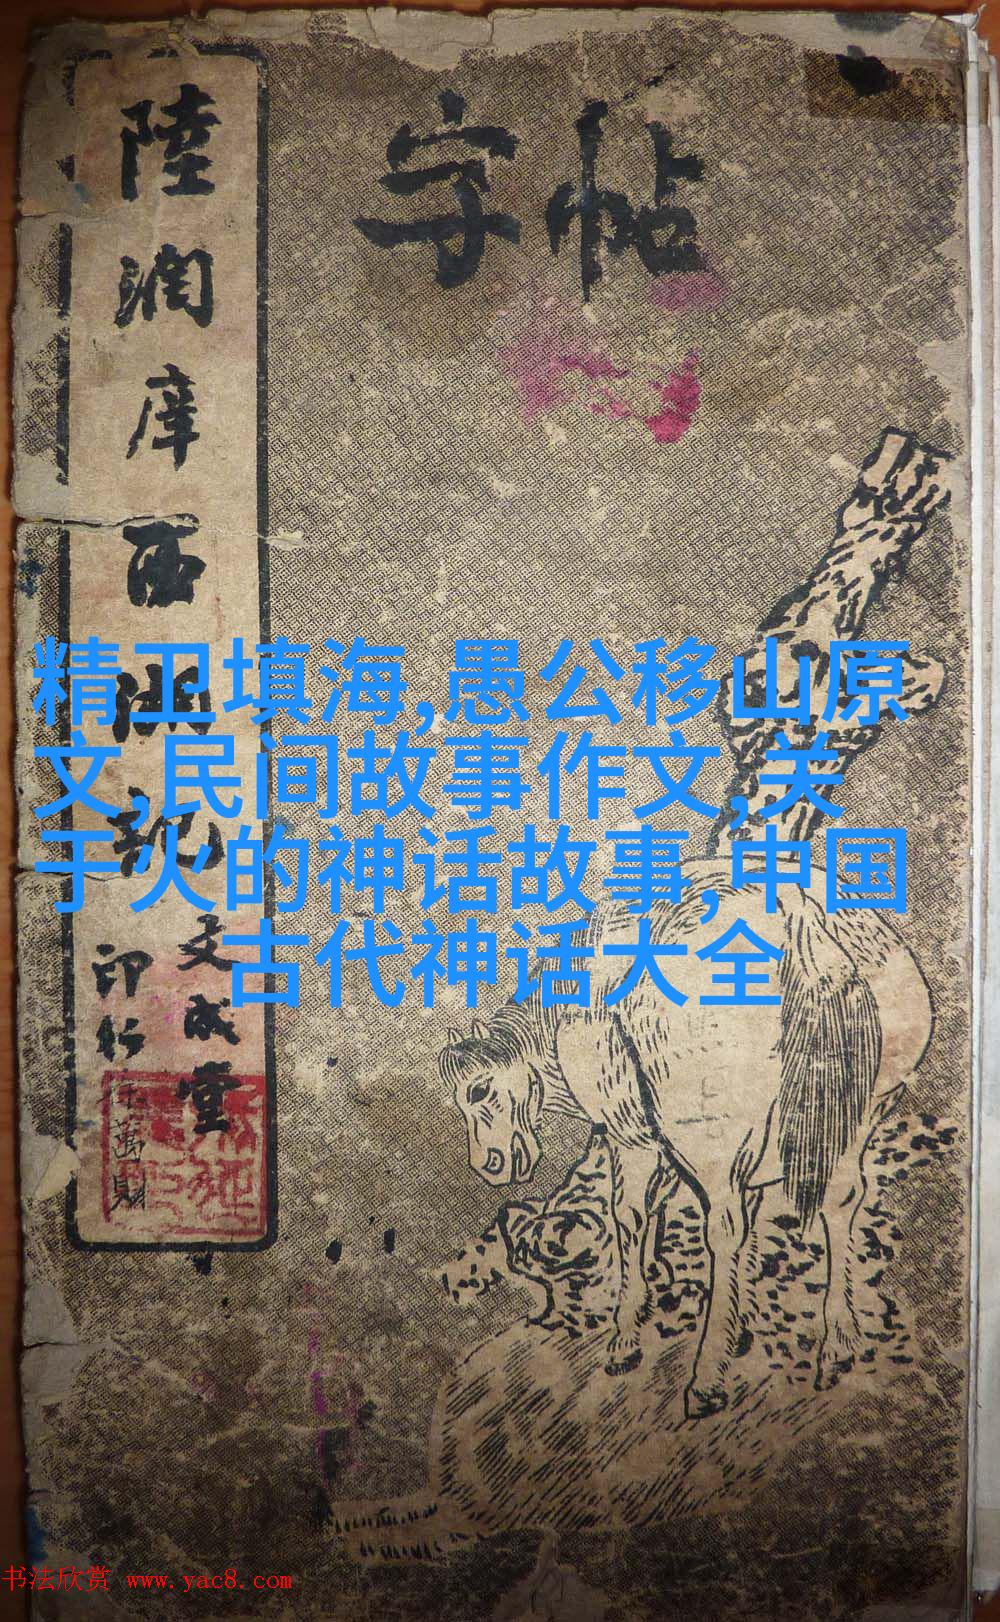 字帖
陸潤庠西湖記
文成堂
印行
徐萬財
精卫填海,愚公移山原
文,民间故事作文,关
于火的神话故事,中国
古代神话大全
书法欣赏 www.yac8.com